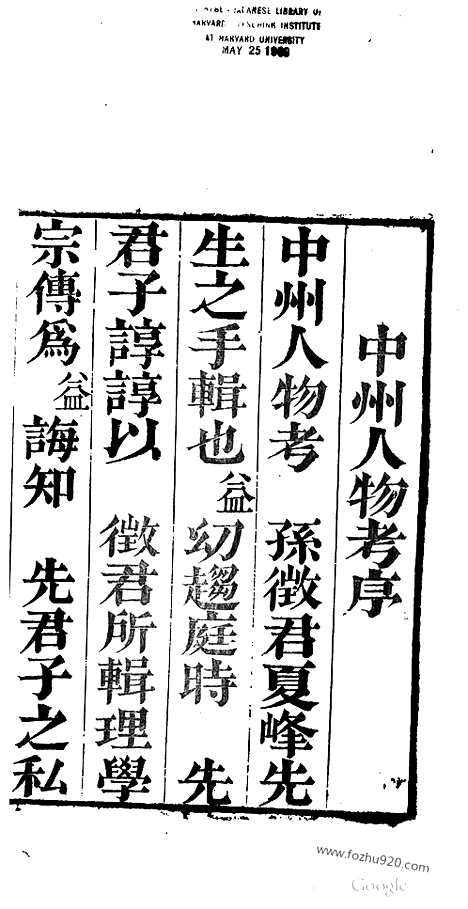 JAPANESE LIBRARY OF
HARVARD INSTITUTE
AT HARVARD UNIVERSITY
MAY 25 1969
中州人物考序
中州人物考 孫徵君夏峰先
生之手輯也益幼趨庭時 先
君子諄諄以 徵君所輯理學
宗傳爲益誨知 先君子之私
www.fozhu920.com
Google